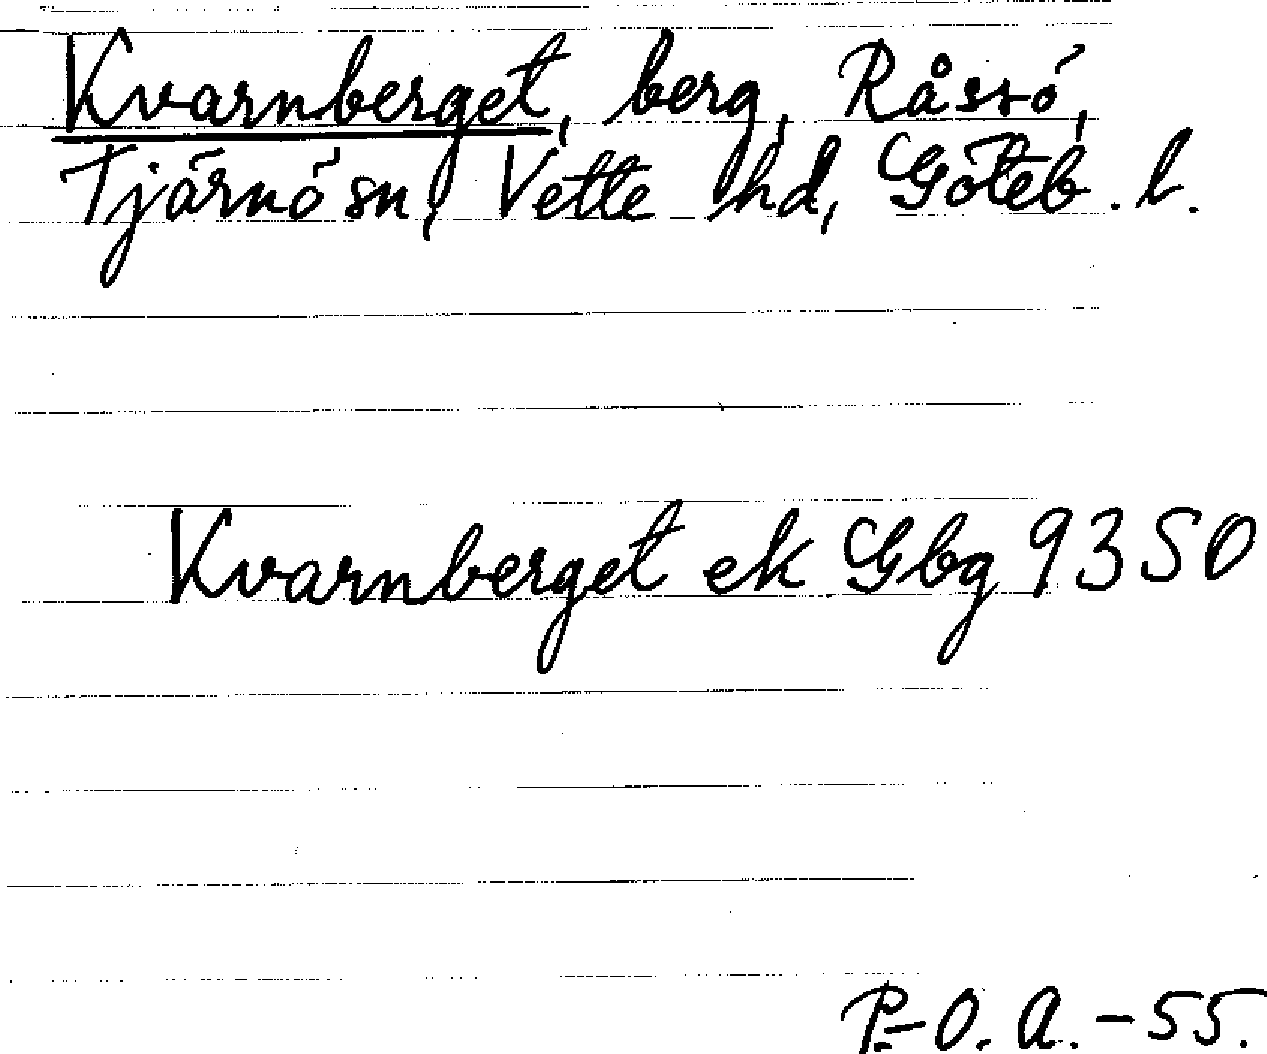 Kvarnberget, berg, Råssö,
Tjärnö sn, Vette hd, Göteb. l.
Kvarnberget ek Gbg 9350
P.-O. A. - 55.